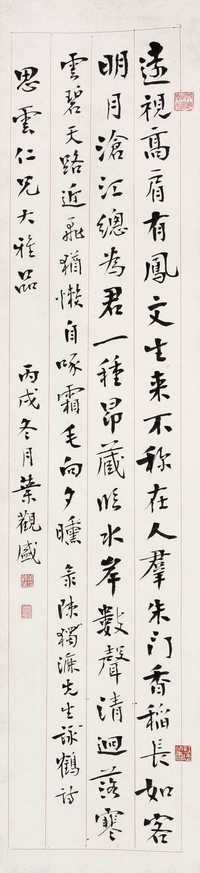 遠視高肩有鳳文生来不称在人羣朱门香稻長如客
明月滄江總為君一種昂藏临水岸數聲清迥落寒
雲碧天路近飛猶懶自啄霜毛向夕曛 录陳獨漉先生詠鶴詩
思雲仁兄大雅品 丙戌冬月葉觀盛